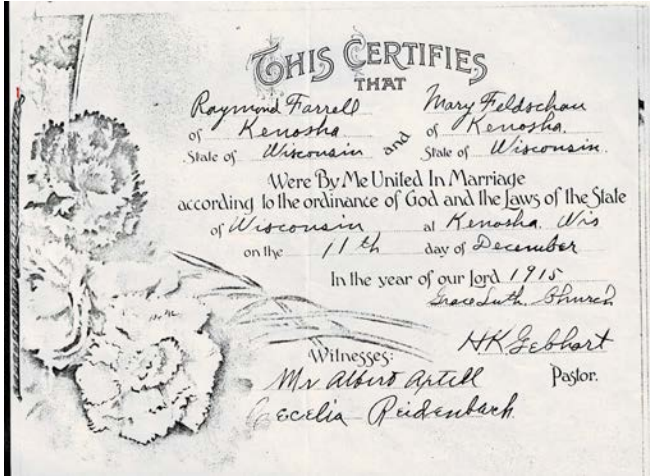 THIS CERTIFIES
THAT
Raymond Farrell Mary Feldschau
of Kenosha and of Kenosha.
State of Wisconsin State of Wisconsin.
Were By Me United In Marriage
according to the ordinance of God and the Laws of the State
of Wisconsin at Kenosha. Wis
on the 11th day of December
In the year of our Lord 1915
Grace Luth. Church
HK Gebhart
Witnesses: Pastor.
Mr Albert
Cecelia Reidenbach.